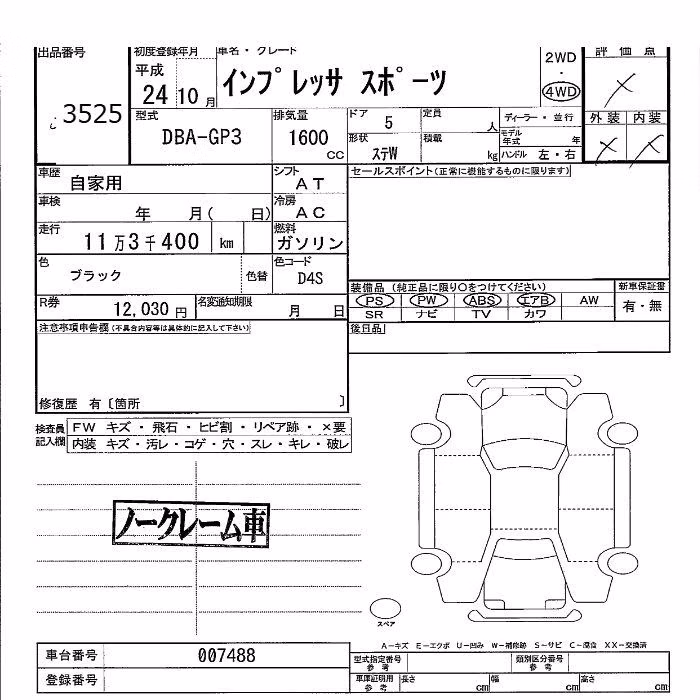 出品番号
3525
初度登録年月
平成
24 10 月
車名・グレード
インプレッサ スポーツ
2WD
・
4WD
評価点
×
外装 内装
× ×
型式
DBA-GP3
排気量
1600
CC
ドア
5
定員
人
形状
ステW
積載
kg
ディーラー・並行
モデル年式
年
ハンドル 左・右
車歴
自家用
シフト
AT
車検
年 月( 日)
冷房
AC
走行
11万3千400 km
燃料
ガソリン
色
ブラック
色替
色コード
D4S
R券
12,030 円
名変通知期限
月 日
セールスポイント(正常に機能するものに限ります)
装備品 (純正品に限り○をつけてください)
PS PW ABS エアB AW
SR ナビ TV カワ
新車保証書
有・無
後日品
注意事項申告欄(不具合内容等は具体的に記入して下さい)
修復歴 有〔箇所 〕
検査員
記入欄
FW キズ・飛石・ヒビ割・リペア跡・×要
内装 キズ・汚レ・コゲ・穴・スレ・キレ・破レ
ノークレーム車
スペア
A-キズ E-エクボ U-凹み W-補修跡 S-サビ C-腐食 XX-交換済
車台番号
007488
登録番号
型式指定番号
参考
類別区分番号
参考
車庫証明用
参考
長さ
cm
幅
cm
高さ
cm